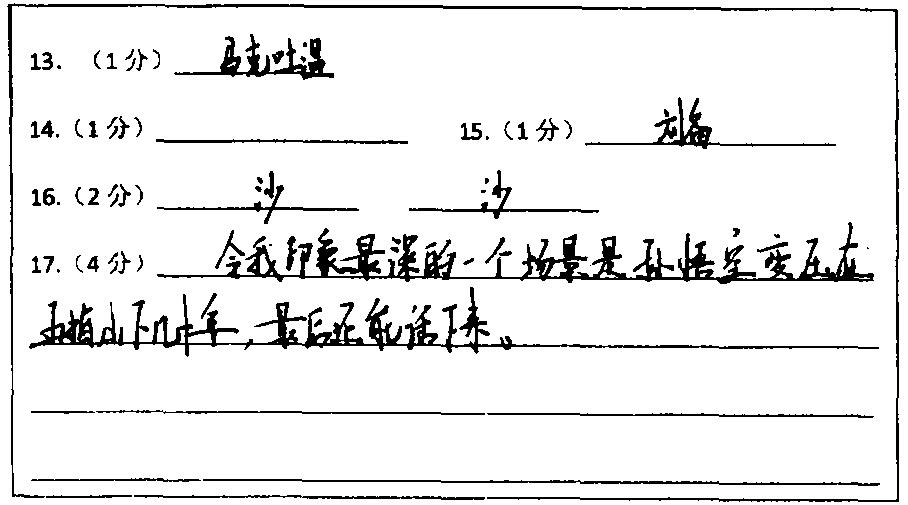 13. （1分） 马克吐温
14.（1分） 15.（1分） 刘备
16.（2分） 沙 沙
17.（4分） 令我印象最深的一个场景是孙悟空变压在
五指山下几十年，最后还能活下来。